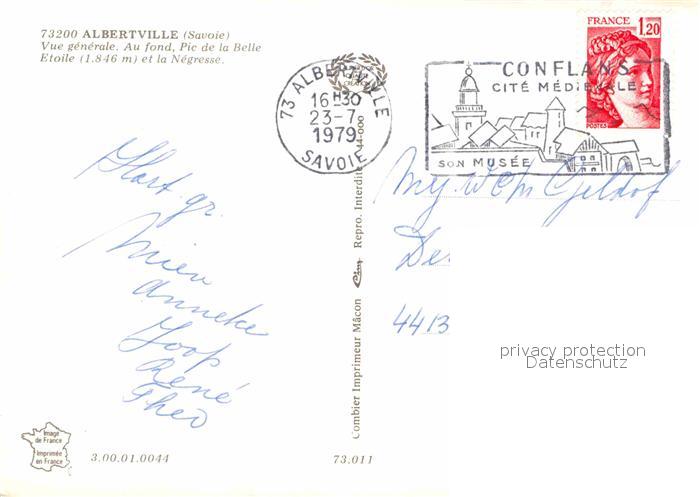 73200 ALBERTVILLE (Savoie)
Vue générale. Au fond, Pic de la Belle
Etoile (1.846 m) et la Négresse.
73 ALBERTVILLE
16 H 30
23-7
1979
SAVOIE
CONFLANS
CITÉ MÉDIÉVALE
SON MUSÉE
FRANCE
1,20
POSTES
Hart. gr.
Mien
Anneke
Joop
René
Theo
Combier Imprimeur Mâcon Cim Repro. Interdite 44-000
Geldof
4413
privacy protection
Datenschutz
Image
de France
Imprimée
en France
3.00.01.0044
73.011